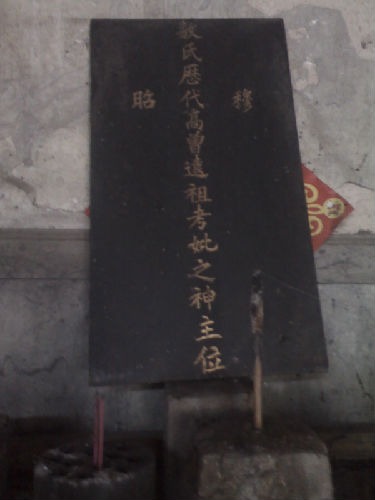 敖氏歷代高曾遠祖考妣之神主位
昭
穆